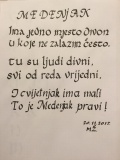 MEDENJAK
Ima jedno mjesto divno
u koje ne zalazim često.
tu su ljudi divni,
svi od reda vrijedni.
I cvijetnjak ima mali
To je Medenjak pravi!
MZ.